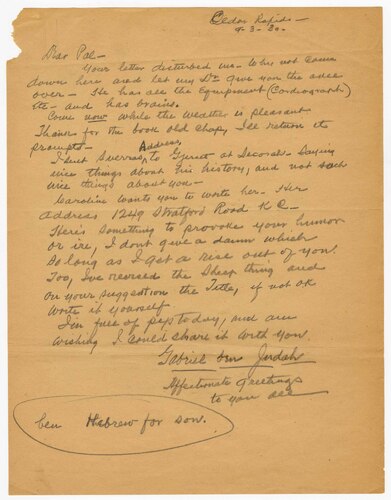 Cedar Rapids -
9-3-30.
Dear Pal -
Your letter disturbed me - Why not come
down here and let my Dr give you the once
over - He has all the Equipment (Cardeograph)
etc - and has brains.
Come now while the weather is pleasant
Thanks for the book old chap, I'll return it
prompto -
I sent Sverres Address, to Gjerset at Decorah - Saying
nice things about his history, and not such
nice things about you -
Caroline wants you to write her - Her
address 1249 Stratford Road K C -
Heres something to provoke your humor
or ire, I dont give a damn which
so long as I get a rise out of you.
Too, I've revised the Sheep thing and
on your suggestion the Title, if not ok
write it yourself
I'm full of pep today, and am
wishing I could share it with you.
Gabriel ben Judah
Affectionate greetings
to you all
ben Hebrew for son.